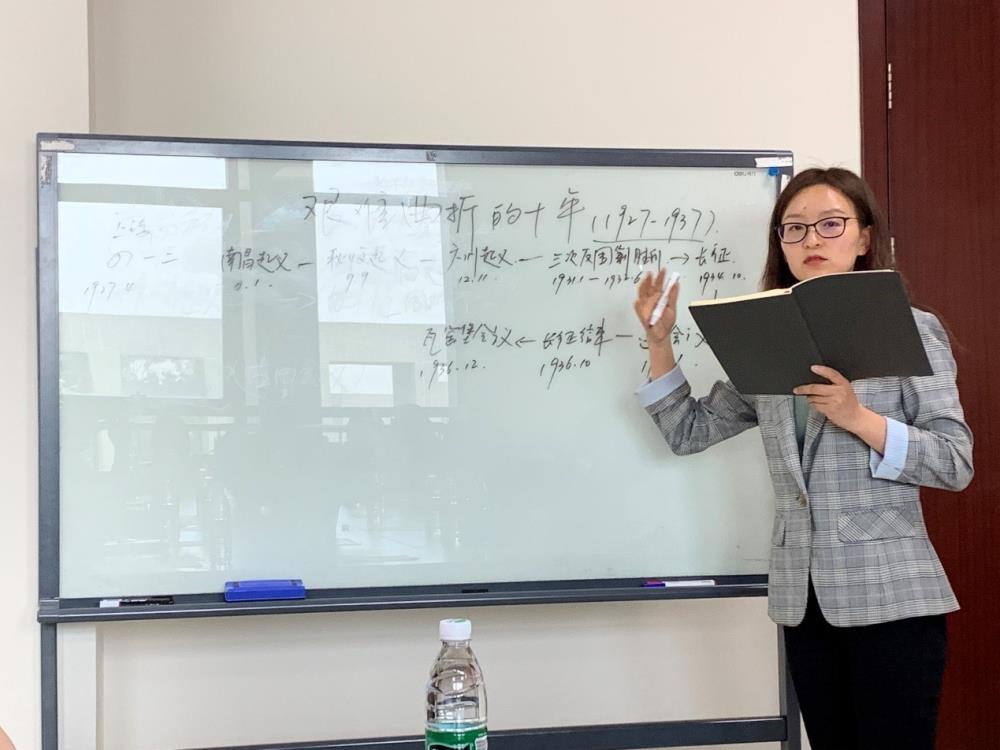 艰难曲折的十年(1927-1937).
上海
四一三 南昌起义 — 秋收起义 — 广州起义 — 三次反围剿胜利 → 长征.
1927.4 8.1. 9.9 12.11. 1931.1 — 1934.10.
瓦窑堡会议 ← 长征结束 — 会议
1936.12. 1936.10